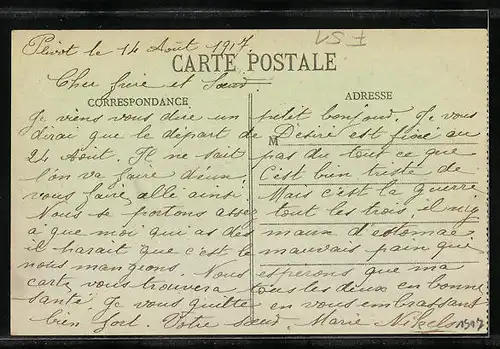 Plivot le 14 Août 1917.
CARTE POSTALE
Cher frère et Sœur
CORRESPONDANCE
ADRESSE
M
Je viens vous dire un petit bonjour. Je vous
dirai que le départ de Désiré est fixé au
24 Août. Il ne sait pas du tout ce que
l'on va faire d'eux. C'est bien triste de
vous faire allé ainsi. Mais c'est la guerre
Nous se portons assez tout les trois, il n'y
a que moi qui as des maux d'estomac
il parait que c'est le mauvais pain que
nous mangions. Nous esperons que ma
carte vous trouvera tous les deux en bonne
santé. Je vous quitte en vous embrassant
bien fort. Votre sœur. Marie
1917